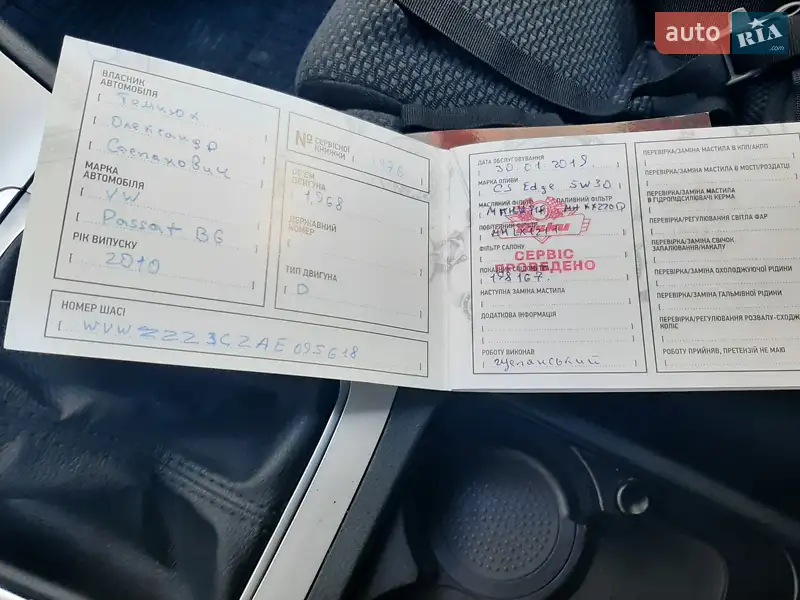 auto RIA .com
ВЛАСНИК
АВТОМОБІЛЯ
Олександр
Степанович
МАРКА
АВТОМОБІЛЯ
VW
Passat B6
РІК ВИПУСКУ
2010
№ СЕРВІСНОЇ
КНИЖКИ 1976
ОБ'ЄМ
ДВИГУНА
1,968
ДЕРЖАВНИЙ
НОМЕР
ТИП ДВИГУНА
D
НОМЕР ШАСІ
WVWZZZ3CZAE095618
ДАТА ОБСЛУГОВУВАННЯ
30 01 2019
МАРКА ОЛИВИ
CS Edge 5W30
МАСЛЯНИЙ ФІЛЬТР ПАЛИВНИЙ ФІЛЬТР
ПОВІТРЯНИЙ
ФІЛЬТР САЛОНУ
СЕРВІС
ПРОВЕДЕНО
198167
НАСТУПНА ЗАМІНА МАСТИЛА
ДОДАТКОВА ІНФОРМАЦІЯ
РОБОТУ ВИКОНАВ
ПЕРЕВІРКА/ЗАМІНА МАСТИЛА В КПП/АКПП
ПЕРЕВІРКА/ЗАМІНА МАСТИЛА В МОСТІ/РОЗДАТЦІ
ПЕРЕВІРКА/ЗАМІНА МАСТИЛА
В ГІДРОПІДСИЛЮВАЧІ КЕРМА
ПЕРЕВІРКА/РЕГУЛЮВАННЯ СВІТЛА ФАР
ПЕРЕВІРКА/ЗАМІНА СВІЧОК
ЗАПАЛЮВАННЯ/НАКАЛУ
ПЕРЕВІРКА/ЗАМІНА ОХОЛОДЖУЮЧОЇ РІДИНИ
ПЕРЕВІРКА/ЗАМІНА ГАЛЬМІВНОЇ РІДИНИ
ПЕРЕВІРКА/РЕГУЛЮВАННЯ РОЗВАЛУ-СХОДЖ
КОЛІС
РОБОТУ ПРИЙНЯВ, ПРЕТЕНЗІЙ НЕ МАЮ